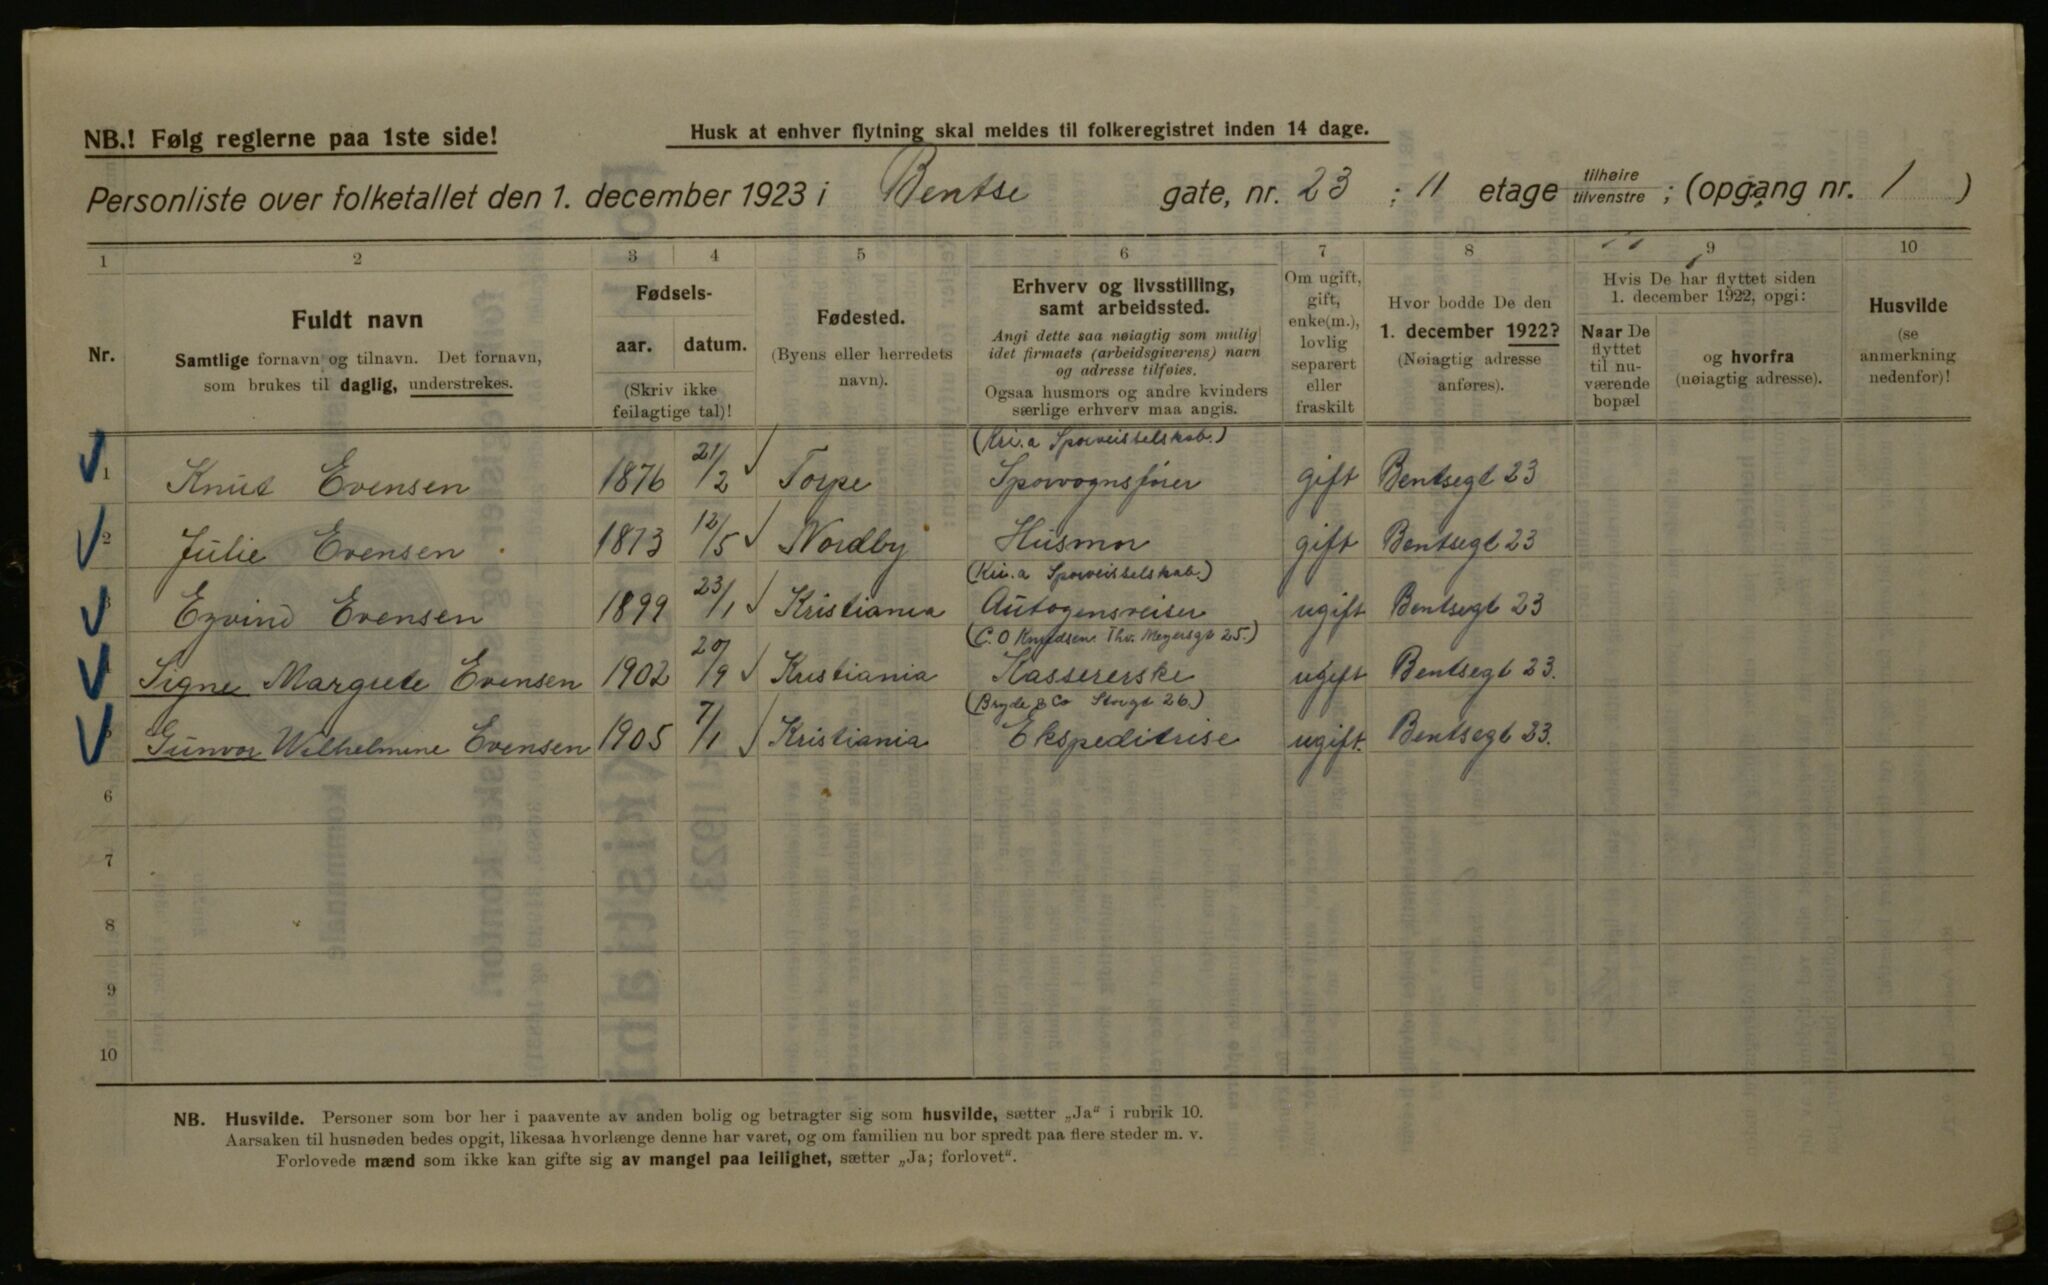 NB.! Følg reglerne paa 1ste side!
Husk at enhver flytning skal meldes til folkeregistret inden 14 dage.
Personliste over folketallet den 1. december 1923 i Bentse gate, nr. 23 ; 11 etage tilhøire tilvenstre ; (opgang nr. 1 )
1 2 3 4 5 6 7 8 9 10
Nr.
Fuldt navn
Samtlige fornavn og tilnavn. Det fornavn,
som brukes til daglig, understrekes.
Fødsels-
aar. datum.
(Skriv ikke
feilagtige tal)!
Fødested.
(Byens eller herredets
navn).
Erhverv og livsstilling,
samt arbeidssted.
Angi dette saa nøiagtig som mulig
idet firmaets (arbeidsgiverens) navn
og adresse tilføies.
Ogsaa husmors og andre kvinders
særlige erhverv maa angis.
Om ugift,
gift,
enke(m.),
lovlig
separert
eller
fraskilt
Hvor bodde De den
1. december 1922?
(Nøiagtig adresse
anføres).
Hvis De har flyttet siden
1. december 1922, opgi:
Naar De
flyttet
til nu-
værende
bopæl
og hvorfra
(nøiagtig adresse).
Husvilde
(se
anmerkning
nedenfor)!
(Kri.a Sporveisselskab.)
1 Knut Evensen 1876 21/2 Torpe Sporvognsfører gift Bentsegt 23
2 Julie Evensen 1873 12/5 Nordby Husmor gift Bentsegt 23
(Kri.a Sporveisselskab.)
3 Eyvind Evensen 1899 23/1 Kristiania Autogensveiser ugift Bentsegt 23
(C.O Knudsen. Thv. Meyersgt 25.)
4 Signe Margrete Evensen 1902 20/9 Kristiania Kassererske ugift Bentsegt 23.
(Bryde & Co Storgt 26.)
5 Gunvor Wilhelmine Evensen 1905 7/1 Kristiania Ekspeditrise ugift. Bentsegt 23.
6
7
8
9
10
NB. Husvilde. Personer som bor her i paavente av anden bolig og betragter sig som husvilde, sætter „Ja“ i rubrik 10.
Aarsaken til husnøden bedes opgit, likesaa hvorlænge denne har varet, og om familien nu bor spredt paa flere steder m. v.
Forlovede mænd som ikke kan gifte sig av mangel paa leilighet, sætter „Ja; forlovet“.